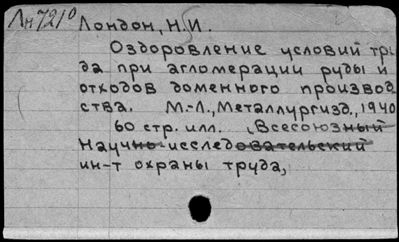 Лн7210
Лондон, Н.И.
Оздоровление условий тру
да при агломерации руды и
отходов доменного производ
ства. М.-Л., Металлургизд., 1940
60 стр. илл. (Всесоюзный
Научно-исследовательский
ин-т охраны труда,